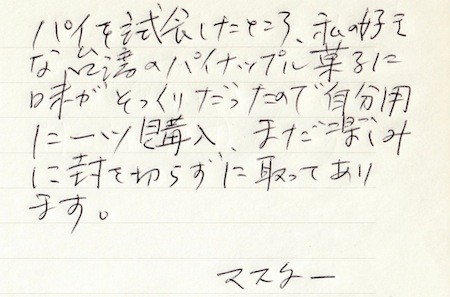 パイを試食したところ、私の好き
な台湾のパイナップル菓子に
味がそっくりだったので自分用
に一ツ購入、まだ楽しみ
に封を切らずに取ってあり
ます。
マスター